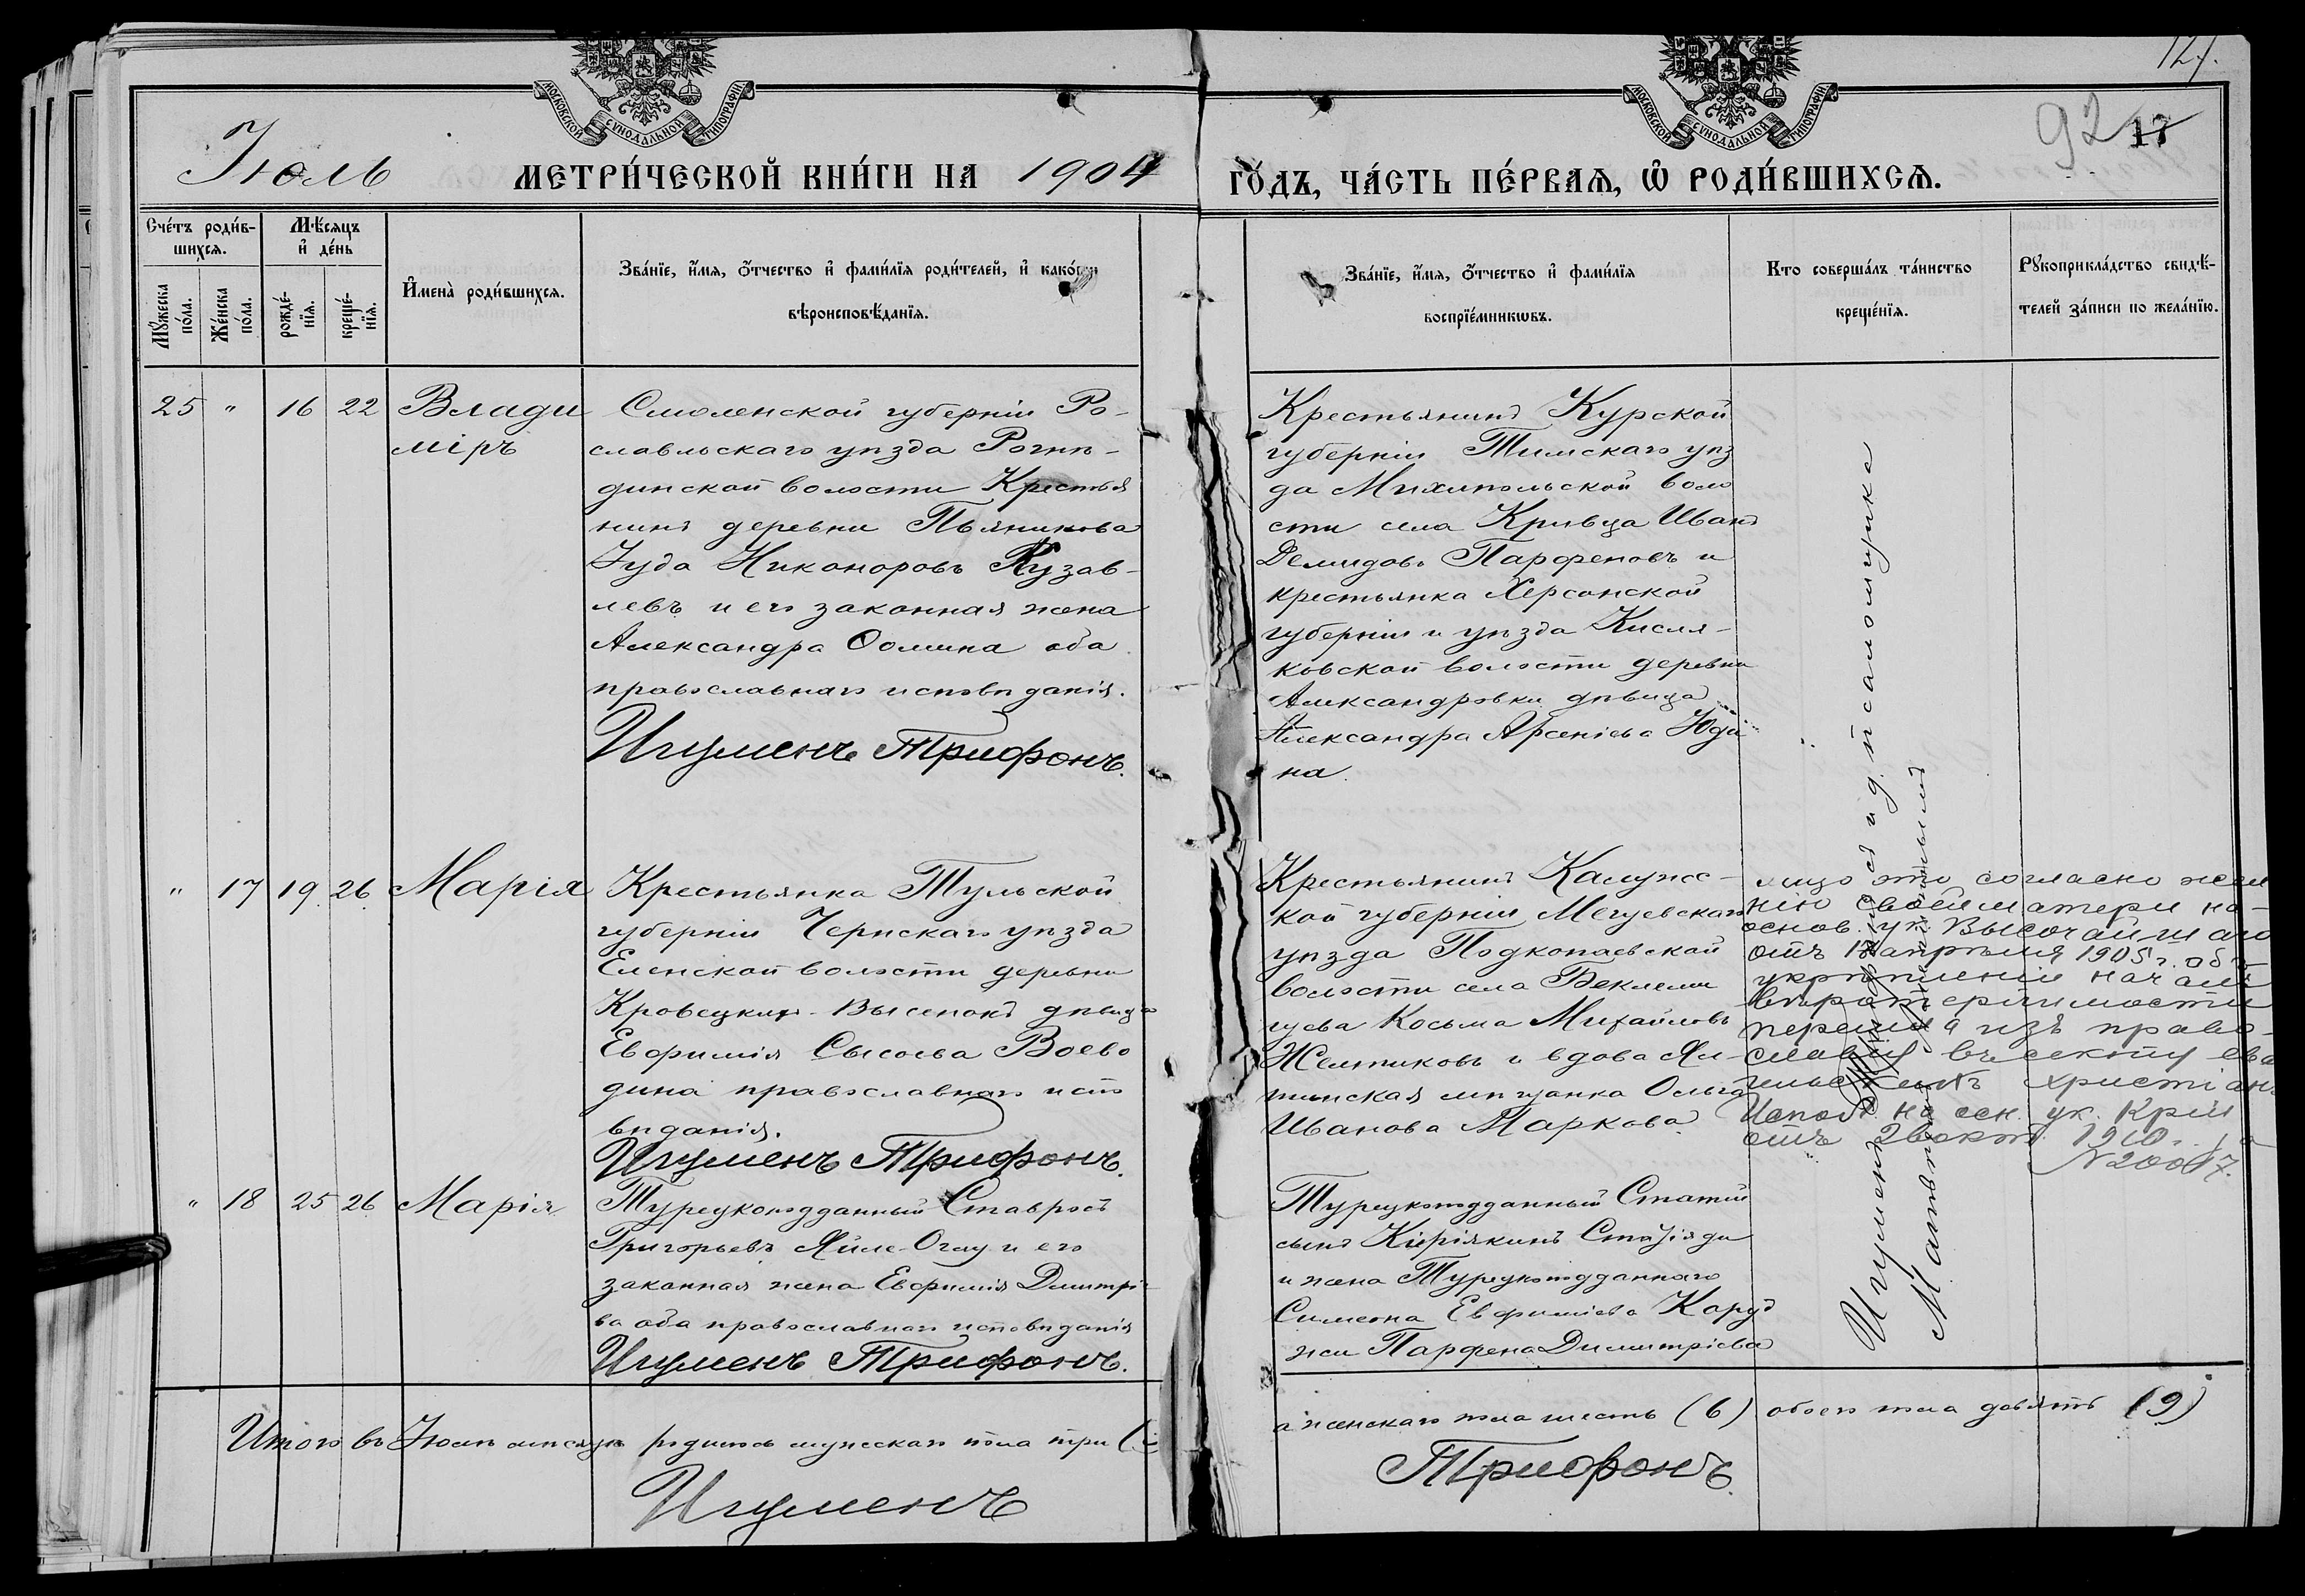 127.
92 17
МОСКОВСКОЙ СѴНОДАЛЬНОЙ ТИПОГРАФІИ
МОСКОВСКОЙ СѴНОДАЛЬНОЙ ТИПОГРАФІИ
Іюль МЕТРИ́ЧЕСКОЙ КНИ́ГИ НА 1904 ГО́ДЪ, ЧА́СТЬ ПЕ́РВАѦ, Ѡ҆ РОДИ́ВШИХСѦ.
Сче́тъ роди́в-
шихсѧ.
Мꙋ́жеска по́ла.
Же́нска по́ла.
Мѣ́сяцъ
и҆ де́нь
рожде́-
нїѧ.
креще́-
нїѧ.
И҆мена̀ роди́вшихсѧ.
Зва́нїе, и҆́мѧ, ѻ҆́тчество и҆ фами́лїѧ роди́телей, и҆ како́гѡ
вѣроисповѣ́данїѧ.
Зва́нїе, и҆́мѧ, ѻ҆́тчество и҆ фами́лїѧ
воспрїе́мникѡвъ.
Кто соверша́лъ та́инство
креще́нїѧ.
Рꙋкоприкла́дство свидѣ́-
телей за́писи по жела́нїю.
25 " 16 22 Влади
міръ
Смоленской губерніи Ро-
славльскаго уѣзда Рогнѣ-
динской волости Крестья
нинъ деревни Пьяникова
Іуда Никоноровъ Кузав-
левъ и его законная жена
Александра Ѳомина оба
православнаго исповѣданія.
Игуменъ Трифонъ.
Крестьянинъ Курской
губерніи Тимскаго уѣз
да Михипольской воло
сти села Кривца Иванъ
Демидовъ Парфеновъ и
крестьянка Херсонской
губерніи и уѣзда Кисля-
ковской волости деревни
Александровки дѣвица
Александра Арсеніева Юди
на.
" 17 19. 26. Марія
Крестьянка Тульской
губерніи Чернскаго уѣзда
Еленской волости деревни
Кровецкихъ-Выселокъ дѣвица
Евфимія Сысоева Воево
дина православнаго испо
вѣданія.
Игуменъ Трифонъ.
Крестьянинъ Калужс-
кой губерніи Мещевскаго
уѣзда Подкопаевской
волости села Беклеми
щева Косьма Михайловъ
Желтиковъ и вдова Ял-
тинская мѣщанка Ольга
Иванова Маркова
лицо это согласно жела
нію своей матери на
основ. ук. Высочайшаго
отъ 17 апрѣля 1905 г. объ
укрѣпленіи началъ
вѣротерпимости
перешла изъ право-
славія въ секту ева
нгельскихъ христіанъ
Исполн. на осн. ук. Крій
отъ 2 окт. 1910 г. за
№ 20017.
" 18 25 26 Марія
Турецкоподданный Ставросъ
Григорьевъ Яиле-Оглу и его
законная жена Евфимія Димитрі
ва оба православнаго исповѣданія
Игуменъ Трифонъ.
Турецкоподданный Статій
сынъ Киріякинъ
и жена Турецкоподданнаго
Симеона Евфиміева Каруд
жи Парфена Димитріева
Игуменъ Трифонъ съ и. д. псаломщика
Матвѣемъ
Итого въ Іюлѣ мѣсяцѣ родилось мужескаго пола три (3) а женскаго пола шесть (6) обоего пола девять (9)
Игуменъ Трифонъ.